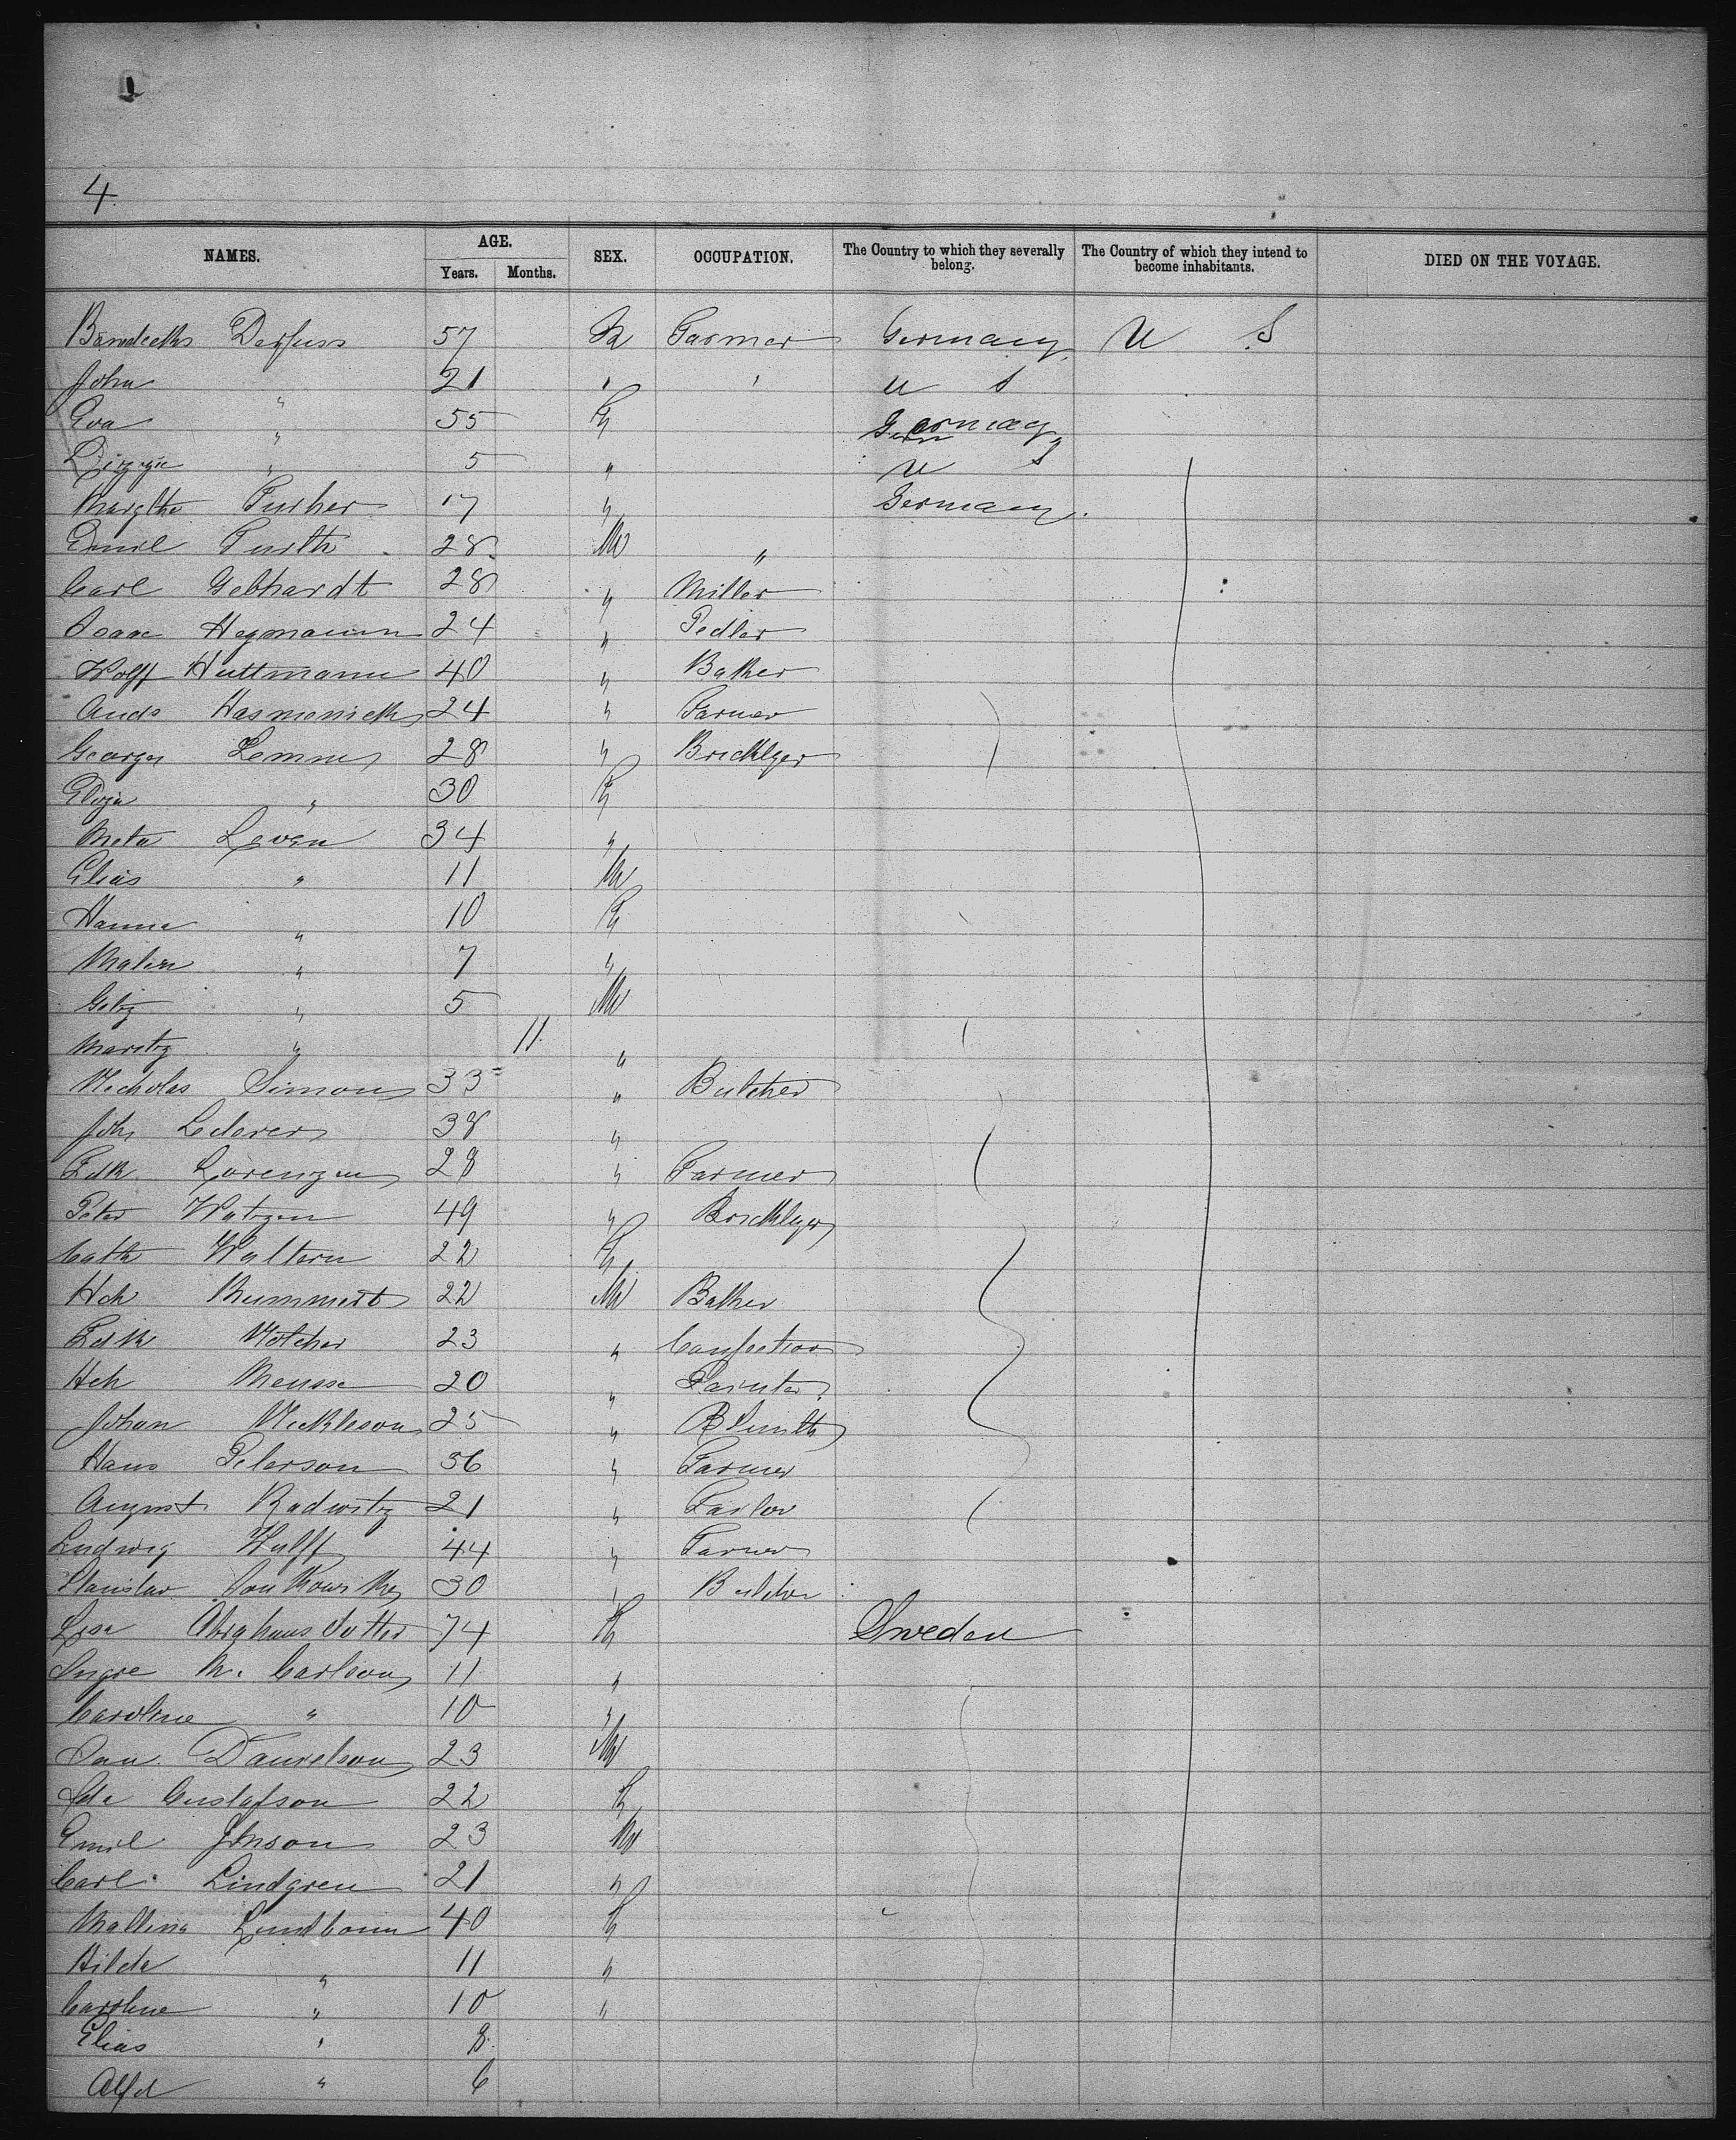 4.
NAMES. AGE. SEX. OCCUPATION. The Country to which they severally belong. The Country of which they intend to become inhabitants. DIED ON THE VOYAGE.
Years. Months.
Derfuss 57 M Farmer Germany U S
John " 21 " " U S
Eva " 55 F Germany
Lizzie " 5 " U S
Margthe Furher 17 " Germany.
Emil Furth 28 M "
Carl Gebhardt 28 " Miller
Isaac Heymann 24 " Pedler
Wolff Huttmann 40 " Baker
Ands 24 " Farmer
George Lemm 28 " Bricklyer
Eliza " 30 F
Meta Leven 34 "
Elias " 11 M
Hanna " 10 F
Malin " 7 "
5 M
Moritz " 11 "
Nicholas Simon 33 " Butcher
Joh Lederer 38 "
Fdk Lorenzen 28 " Farmer
Peter Watzen 49 " Bricklyer
Cath Waltern 22 F
Hch Rummert 22 M Baker
Fdk 23 " Confection
Hch Meusse 20 " Painter
Johan Nickleson 25 " B Smith
Hans Peterson 56 " Farmer
August Radwitz 21 " Tailor
Ludwig Wulff 44 " Farmer
Stanislav 30 " Butcher
Lisa Abrahamsdotter 74 F Sweden
Ingre M. Carlson 11 "
Caroline " 10 "
Dan Danielson 23 M
Ida Gustafson 22 F
Emil Jonson 23 M
Carl Lindgren 21 "
Mallina Lundbom 40 F
Hilda " 11 "
Caroline " 10 "
Elias " 8.
Alfd " 6